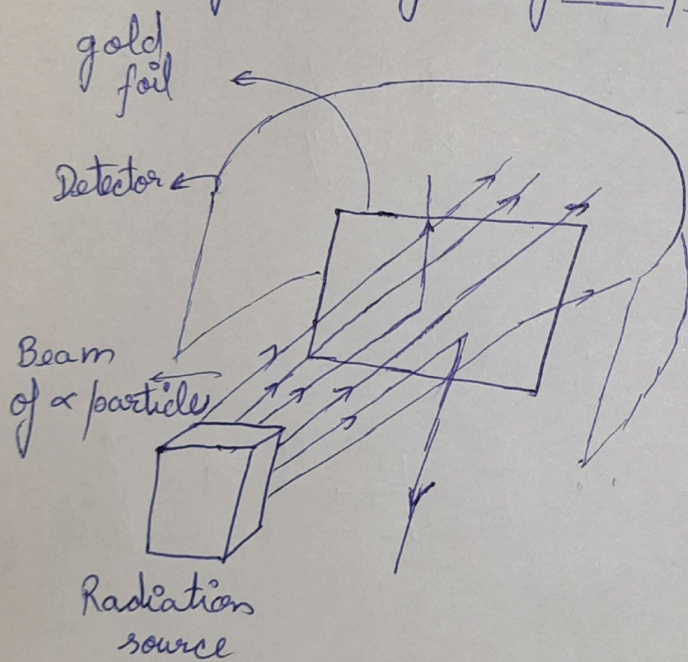 gold
foil
Detector
Beam
of α particles
Radiation
source